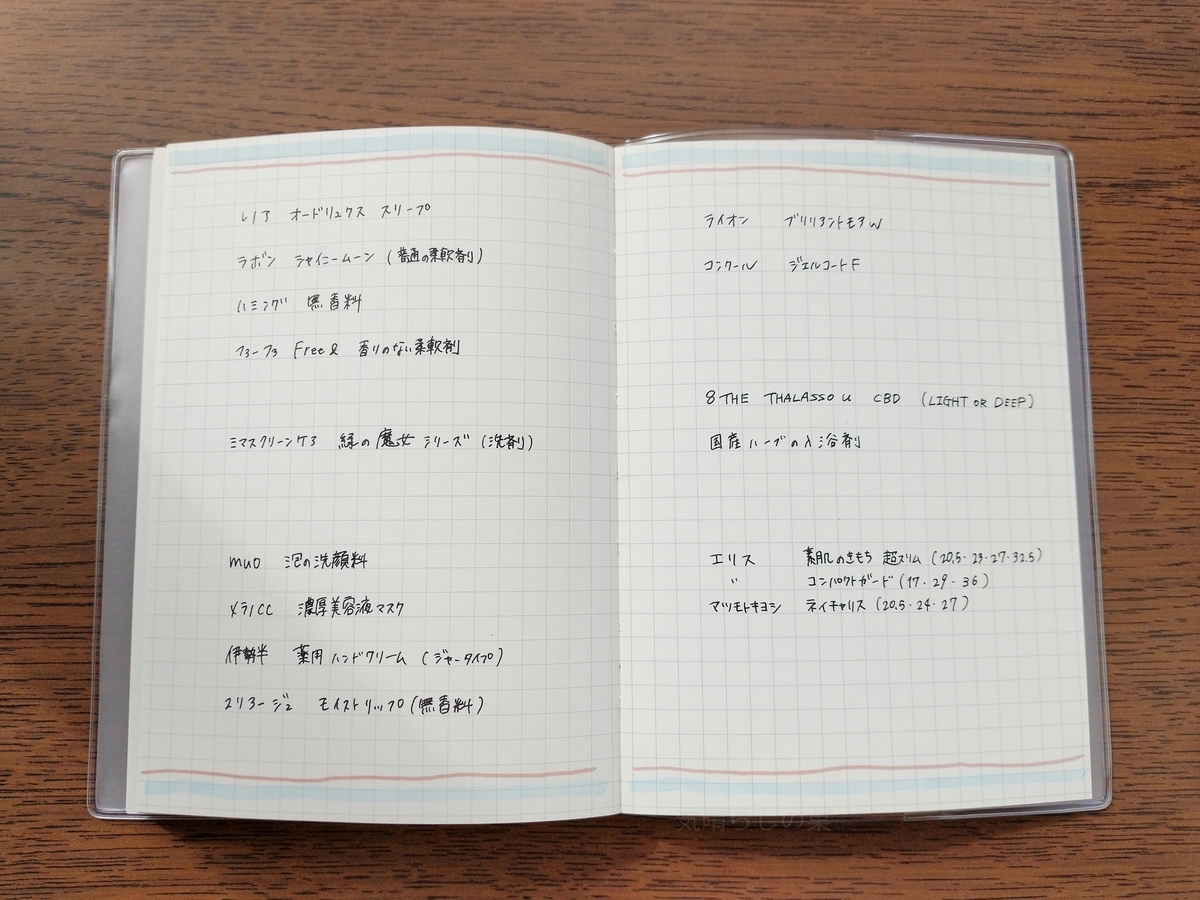 レノア オードリュクス スリープ
ラボン シャイニームーン (普通の柔軟剤)
ハミング 無香料
ファーファ Free& 香りのない柔軟剤
ミマスクリーンケア 緑の魔女 シリーズ (洗剤)
muo 泡の洗顔料
メラノCC 濃厚美容液マスク
伊勢半 薬用 ハンドクリーム (ジャータイプ)
ユリアージュ モイストリップ (無香料)
ライオン ブリリアントモアW
コンクール ジェルコートF
8 THE THALASSO u CBD (LIGHT OR DEEP)
国産ハーブの入浴剤
エリス 素肌のきもち 超スリム (20.5・23・27・32.5)
〃 コンパクトガード (17・29・36)
マツモトキヨシ ネイチャリス (20.5・24・27)
気晴らしの巣